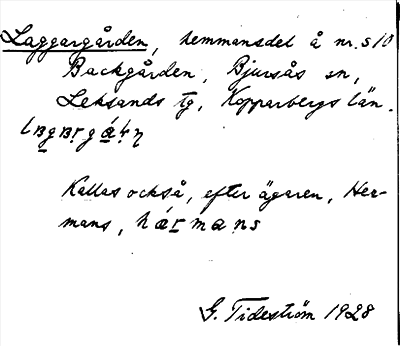 Laggargården, hemmansdel å nr. s 10
Backgården, Bjursås sn,
Leksands tg, Kopparbergs län.
Kallas också, efter ägaren, Her-
mans,
G. Tideström 1928